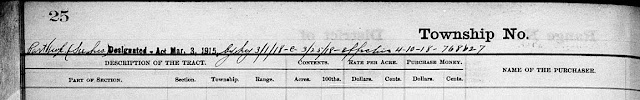 25
Township No.
Designated - Act Mar. 3, 1915, 3/1/18-C 3/25/18-effective 4-10-18-768627
DESCRIPTION OF THE TRACT. CONTENTS. RATE PER ACRE. PURCHASE MONEY. NAME OF THE PURCHASER.
PART OF SECTION. Section. Township. Range. Acres. 100ths. Dollars. Cents. Dollars. Cents.